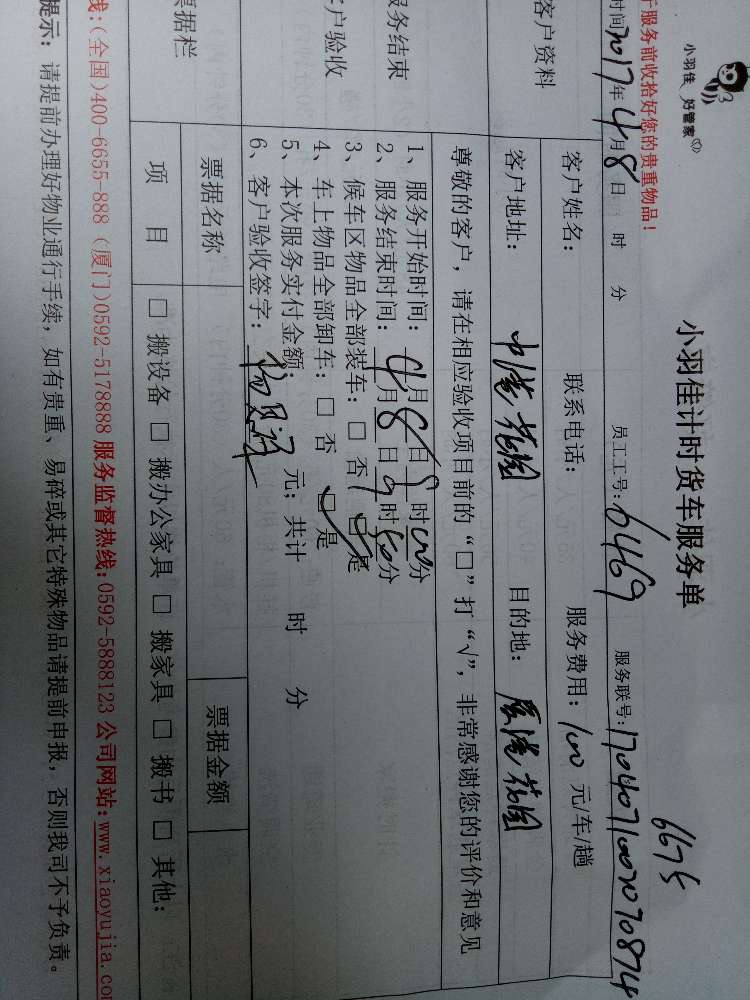 小羽佳 好管家
于服务前收拾好您的贵重物品!
小羽佳计时货车服务单
6675
时间2017年4月8日 时 分 员工工号:6469 服务联号:1704071002070874
客户资料
客户姓名: 联系电话: 服务费用:100元/车/趟
客户地址: 中港花园 目的地:
花园
尊敬的客户,请在相应验收项目前的“□”打“√”,非常感谢您的评价和意见
服务结束
客户验收
1、服务开始时间:4月8日8时00分
2、服务结束时间: 月8日9时50分
3、候车区物品全部装车:□ 否 ☑是
4、车上物品全部卸车:□ 否 ☑是
5、本次服务实付金额: 元;共计 时 分
6、客户验收签字:
票据栏
票据名称 票据金额
项 目 □ 搬设备 □ 搬办公家具 □ 搬家具 □ 搬书 □ 其他:
线:(全国)400-6655-888 (厦门)0592-5178888 服务监督热线:0592-5888123 公司网站:www.xiaoyujia.co
提示: 请提前办理好物业通行手续,如有贵重、易碎或其它特殊物品请提前申报,否则我司不予负责。